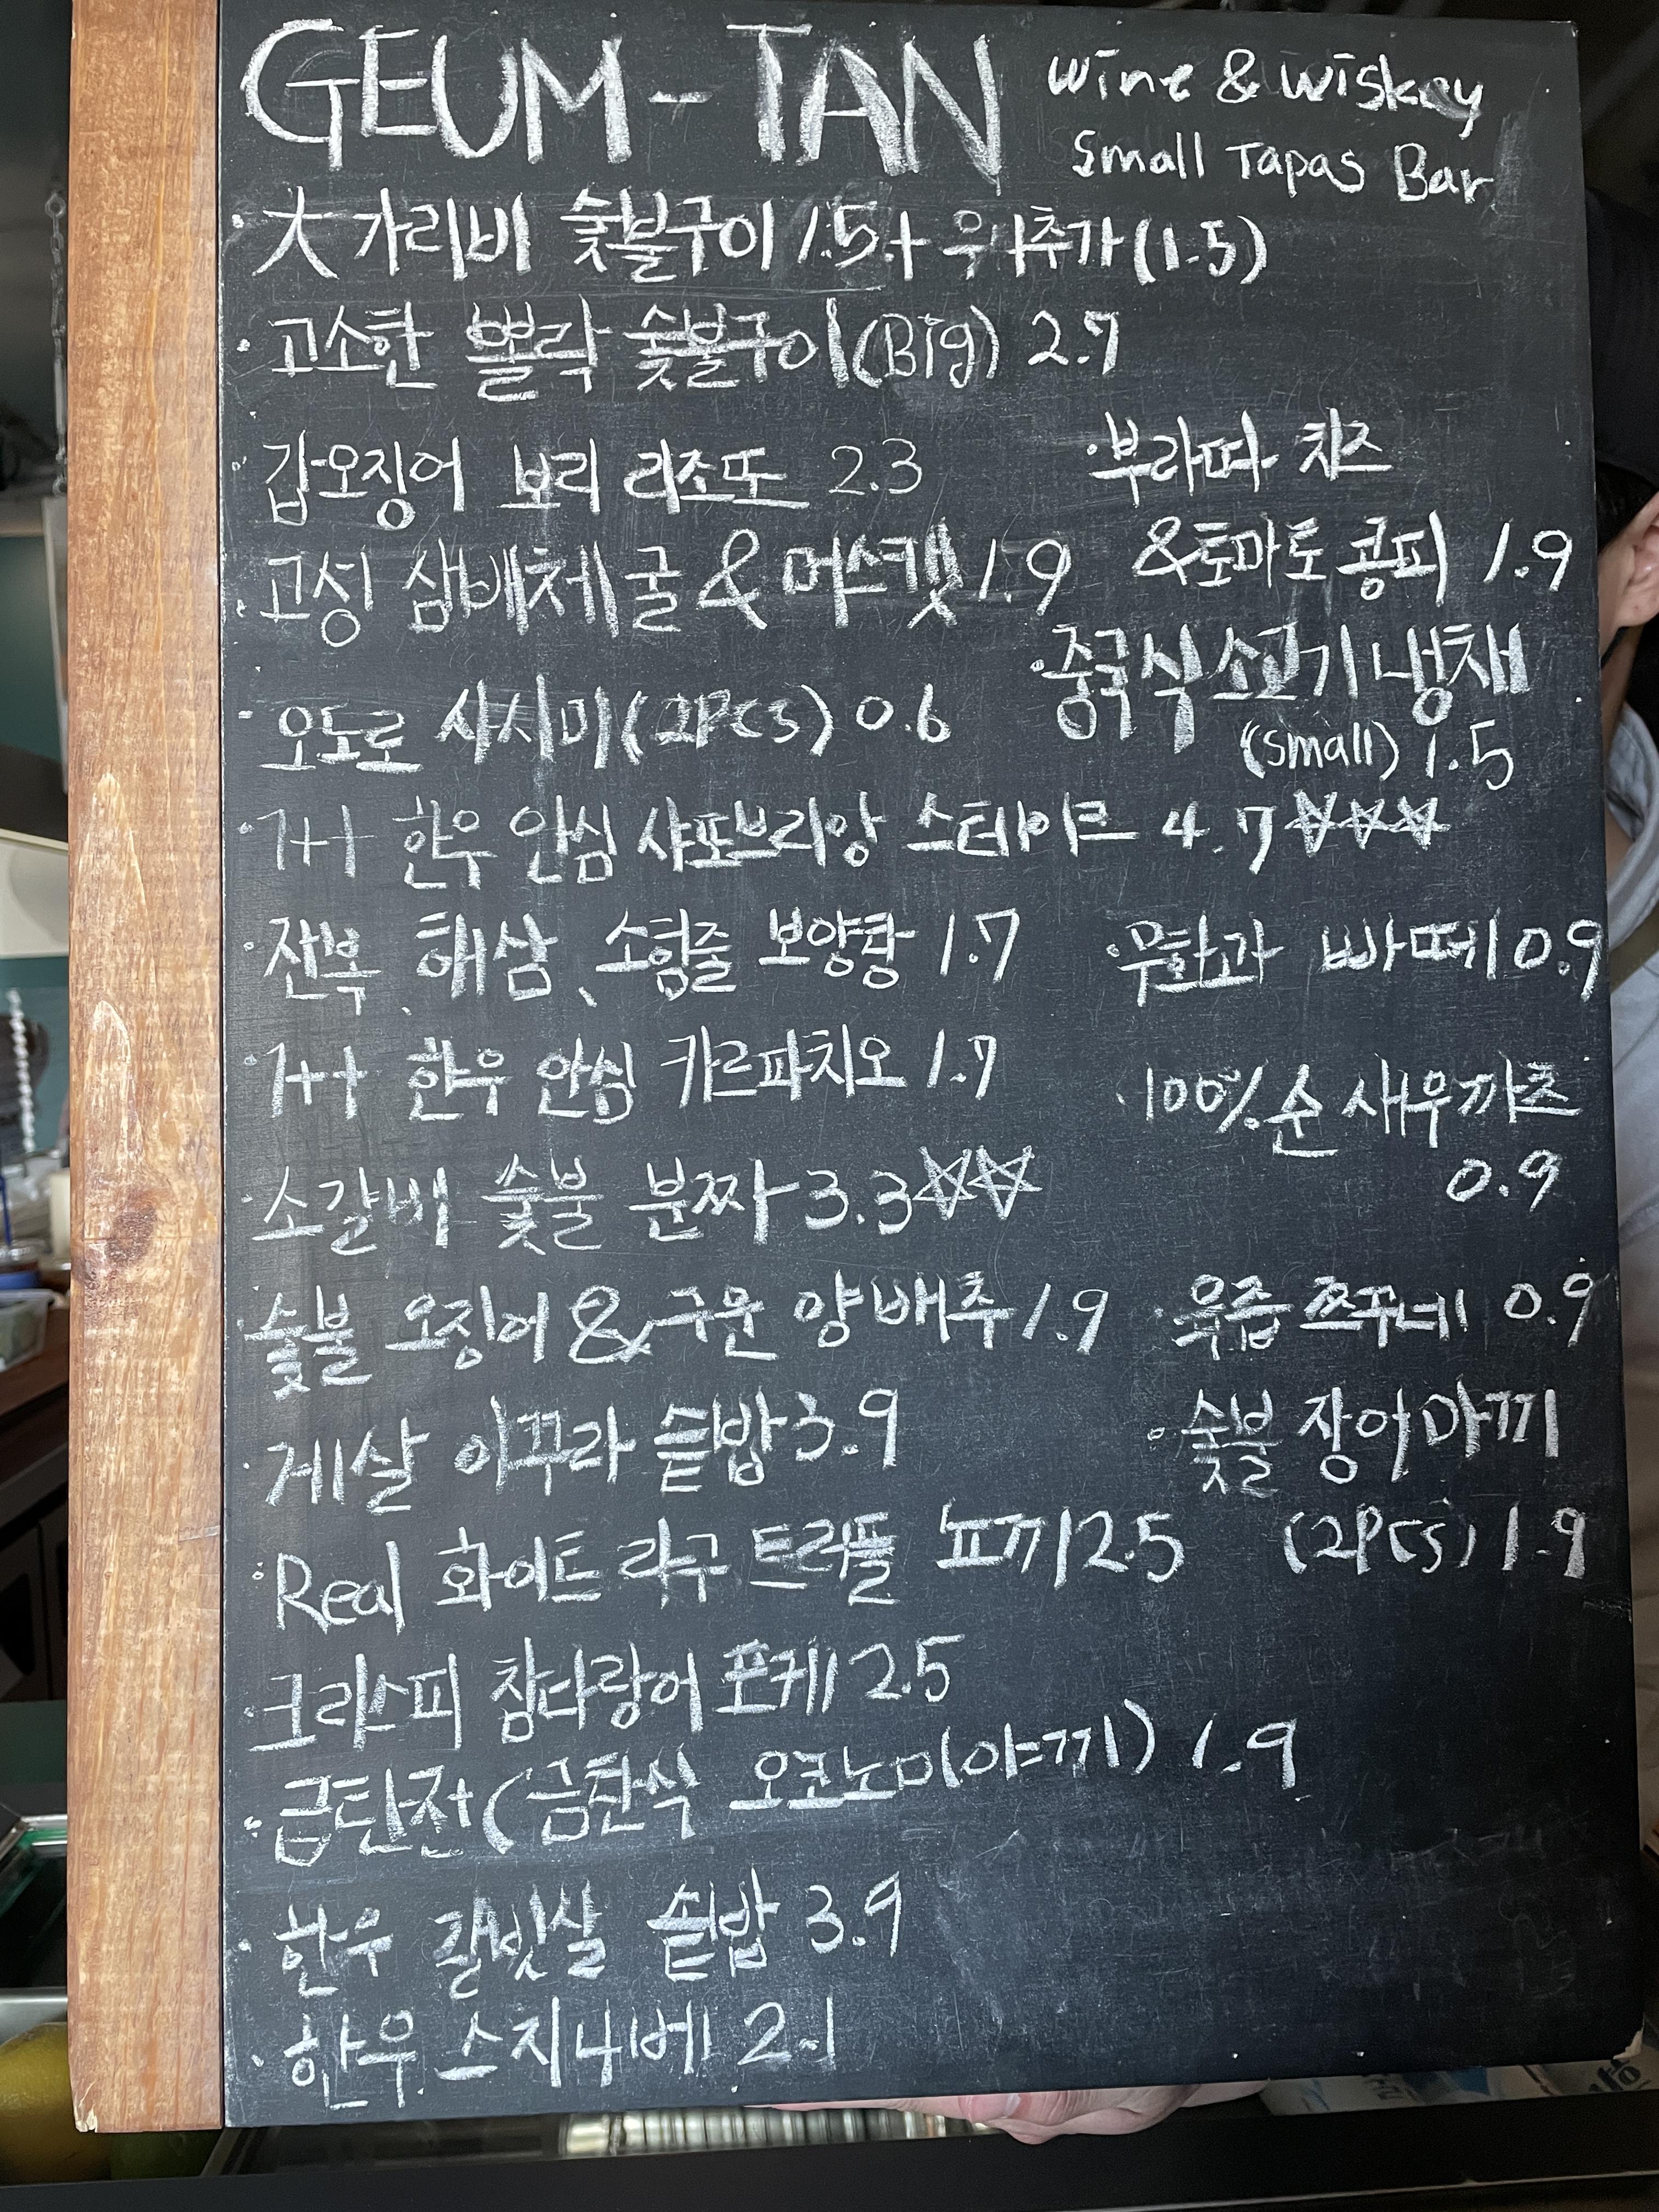 GEUM-TAN
Wine & Wiskey
Small Tapas Bar
· 大 가리비 숯불구이 1.5 + 우니추가 (1.5)
· 고소한 뽈락 숯불구이 (Big) 2.7
· 갑오징어 보리 리조또 2.3
· 부라따 치즈
& 토마토 콩피 1.9
· 고성 삼배체 굴 & 머스캣 1.9
· 중국식 소고기 냉채
(small) 1.5
· 오도로 사시미 (2Pcs) 0.6
· 1++ 한우 안심 샤또브리앙 스테이크 4.7 ☆☆☆
· 전복、해삼、소힘줄 보양탕 1.7
· 무화과 빠떼 0.9
· 1++ 한우 안심 카르파치오 1.7
· 100% 순 새우까츠
0.9
· 소갈비 숯불 분짜 3.3 ☆☆
· 숯불 오징어 & 구운 양배추 1.9
· 육즙 쯔꾸네 0.9
· 게살 이꾸라 솥밥 3.9
· 숯불 장어 마끼
(2Pcs) 1.9
· Real 화이트 라구 트러플 뇨끼 2.5
· 크리스피 참다랑어 포케 2.5
· 금탄전 (금탄식 오코노미야끼) 1.9
· 한우 갈빗살 솥밥 3.9
· 한우 스지나베 2.1